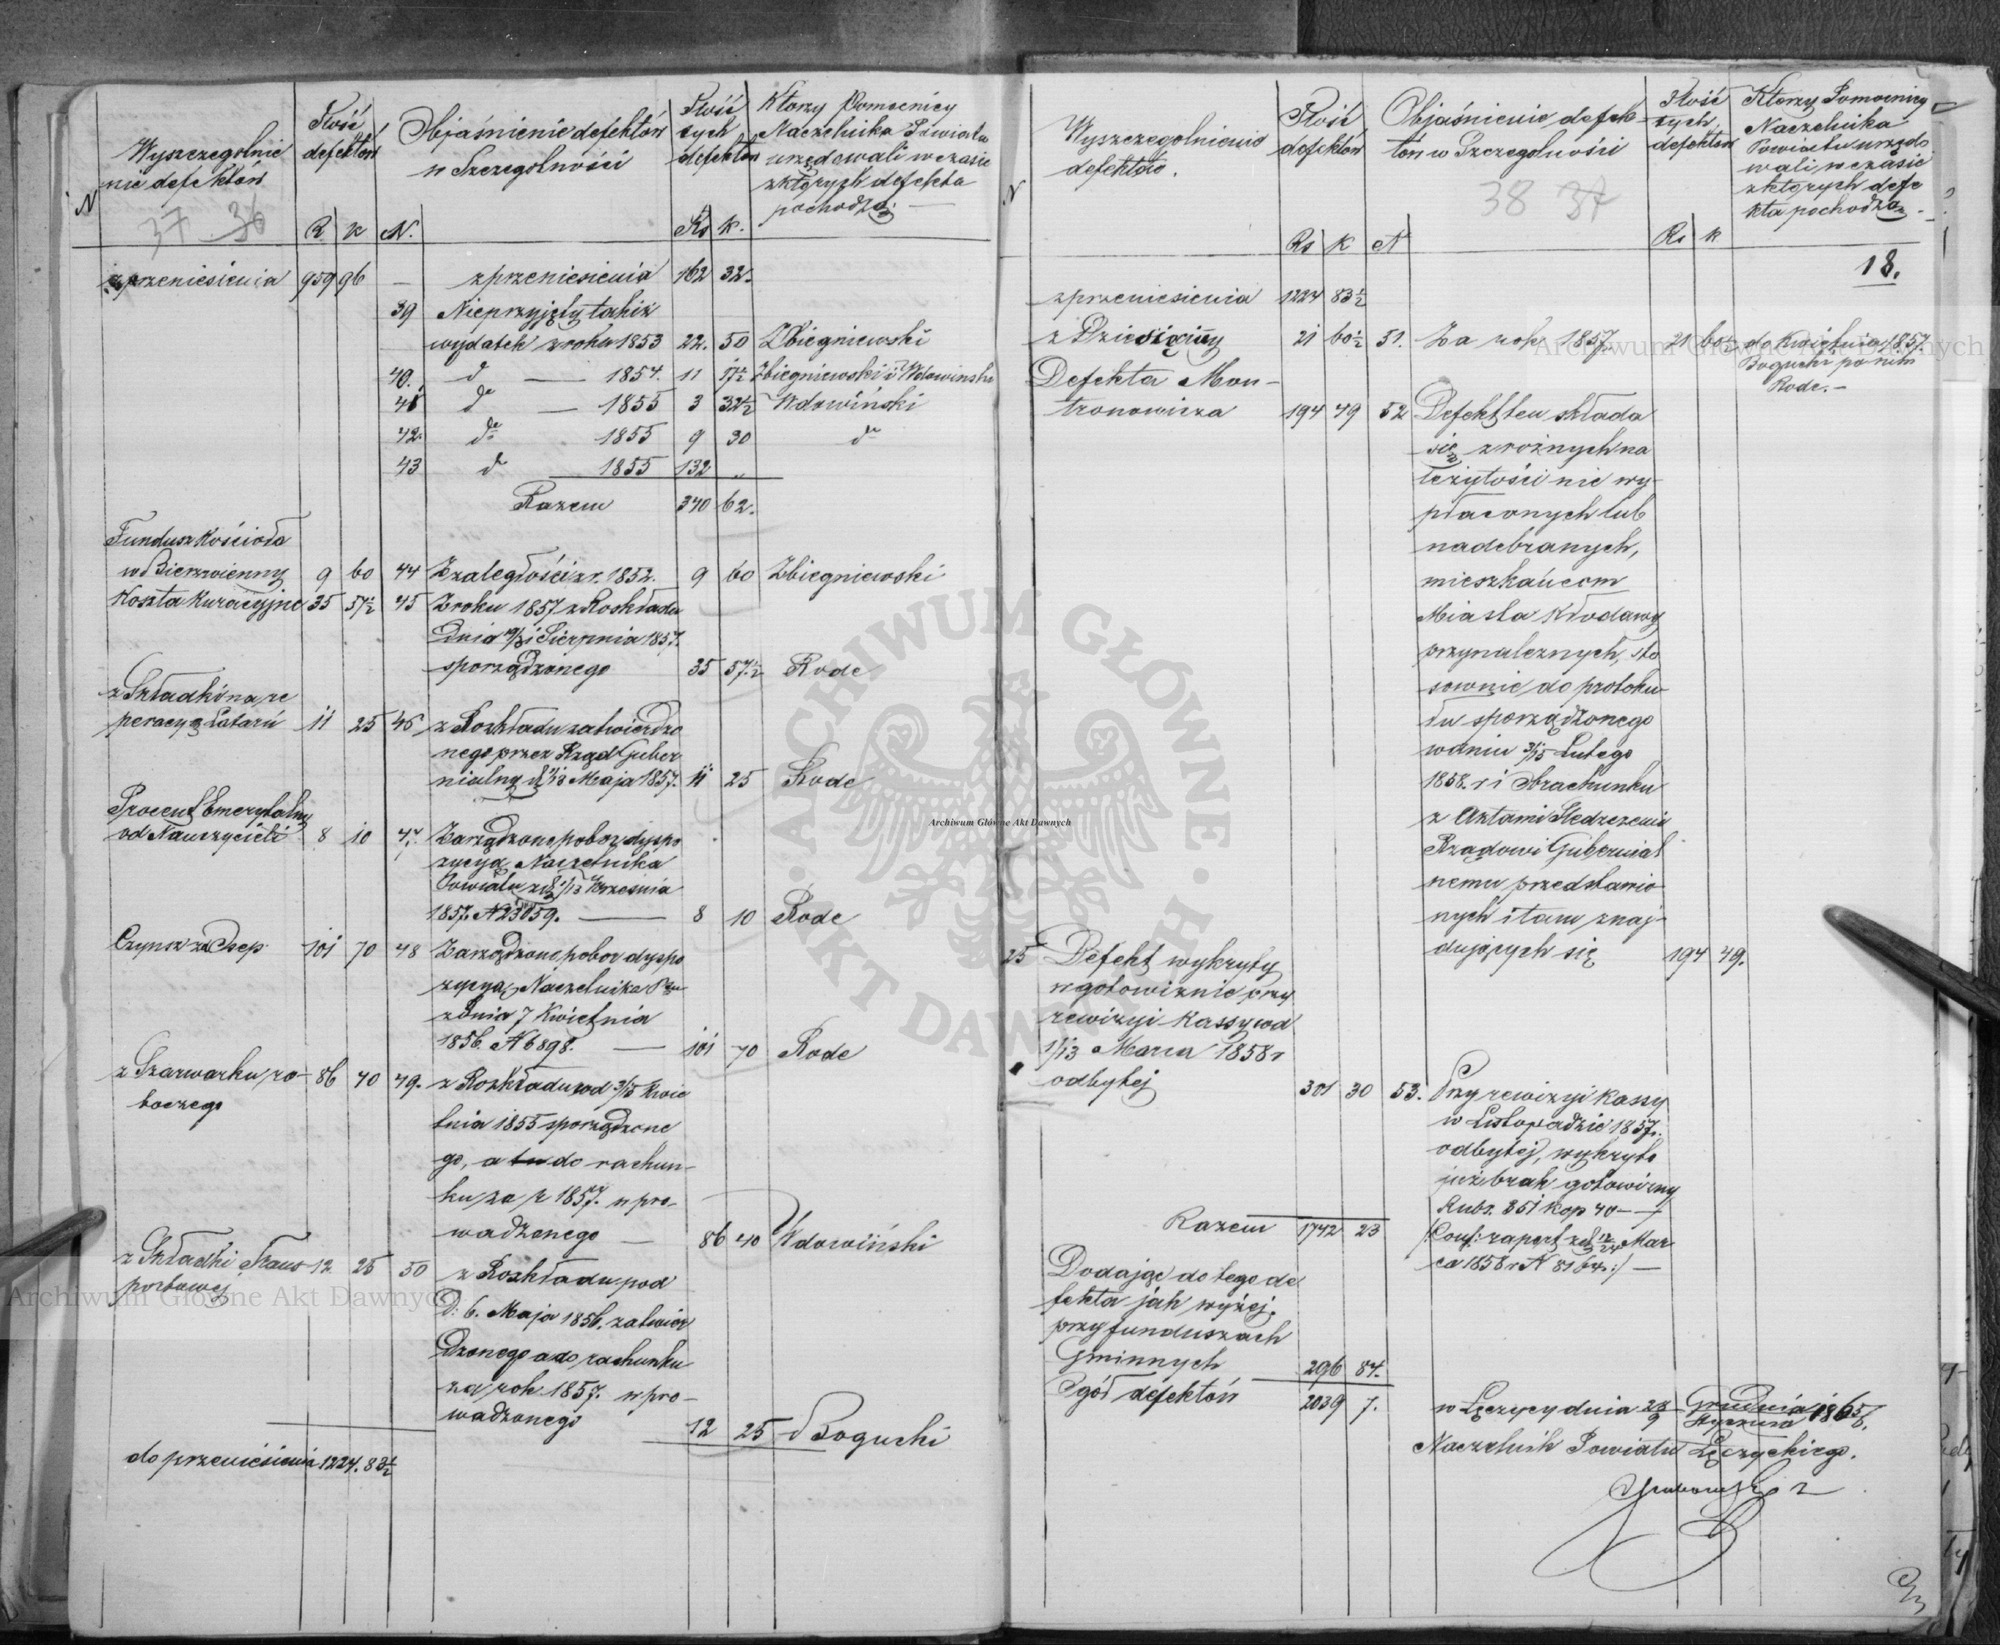 N
Wyszczegolnie
nie defektow
Ilość
defektow
Objaśnienie defektow
w Szczegolności
Ilość
tych
defektow
Ktorzy Pomocnicy
Naczelnika Powiatu
urzędowali w czasie
z ktorych defekta
pochodzą.
37 36
R k N. Rs k.
z przeniesienia 959 96 — z przeniesienia 162 32.
39 Nieprzyjęty takiż
wydatek z roku 1853 22. 50 Zbiegniewski
40. d — 1854. 11 17½ Zbiegniewski i Wdowinski
41 de — 1855 3 32½ Wdowiński
42. de 1855 9 30 de
43 de 1855 132 "
Razem 340 62.
Fundusz Kościoła
w Bierzwienny 9 60 44 Z zaległości z r. 1852. 9 60 Zbiegniewski
Koszta Kuracyjne 35 57½ 45 Z roku 1857 z Roskładu
Dnia 19/31 Sierpnia 1857.
sporządzonego 35 57½ Rode
z Składki na re
peracyą Latarń 11 25 46 z Rozkładu zatwierdzo
nego przez Rząd Guber
nialny d 1/13 Maja 1857. 11 25 Rode
Procent Emerytalny
od Nauczycieli 8 10 47 Zarządzono pobor dyspo
zycyą Naczelnika
Powiatu z d 1/13 Września
1857. N 23059. — 8 10 Rode
Czynsz za Dsep. 101 70 48 Zarządzono pobor dyspo
zycyą Naczelnika Ptu
z dnia 7 Kwietnia
1856. N 6898. — 101 70 Rode
z Szarwarku ro- 86 40 49. z Rozkładu pod 3/15 Kwie
boczego
tnia 1855 sporządzone
go, a do rachun-
ku za r 1857. wpro-
wadzonego — 86 40 Wdowiński
z Składki Trans 12 25 50 z Rozkładu pod
portowej
D: 6. Maja 1856. zatwier
dzonego a do rachunku
za rok 1857. wpro-
wadzonego 12 25 Boguski
do przeniesienia 1224. 83½
N
Wyszczegolnienie
defektow.
Ilość
defektow
Objaśnienie defek-
tow w Szczegolności
Ilość
tych
defektow
Ktorzy Pomocnicy
Naczelnika
Powiatu urzędo
wali w czasie
z ktorych defe
kta pochodzą. -
38 37
Rs k N Rs k
18.
z przeniesienia 1224 83½
z Dziesięciny 21 60½ 51. Za rok 1857. 21 60½ do Kwietnia 1857.
Boguski po nim
Rode. -
Defekta Mon-
tronowicza 194 49 52 Defekt ten składa
się z rożnych na
leżytości nie wy-
płaconych lub
nadebranych,
mieszkańcom
Miasta Kłodawy
przynależnych, sto
sownie do protoku-
łu sporządzonego
w dniu 3/15 Lutego
1858. r i Obrachunku
z Aktami Śledzczemi
Rządowi Gubernial
nemu przedstawio
nych i tam znaj-
dujących się 194 49.
25 Defekt wykryty
w gotowiznie przy
rewizyi Kassy w d
1/13 Marca 1858 r
odbytej 301 30 53. Przy rewizyi Kassy
w Listopadzie 1857.
odbytej, wykryto
już brak gotowizny
Rubr. 351 kop 40 —
Razem 1742 23
/Conf: raport z d 12/24 Mar
ca 1858 r N 8164:/ —
Dodając do tego de
fekta jak wyżej
przy funduszach
Gminnych 296 84.
Ogół defektow 2039 7.
w Łęczycy dnia 28/9 Grudnia/Stycznia 1865/6.
Naczelnik Powiatu Łęczyckiego.
ARCHIWUM GŁÓWNE AKT DAWNYCH
Archiwum Główne Akt Dawnych
Archiwum Główne Akt Dawnych
Archiwum Główne Akt Dawnych